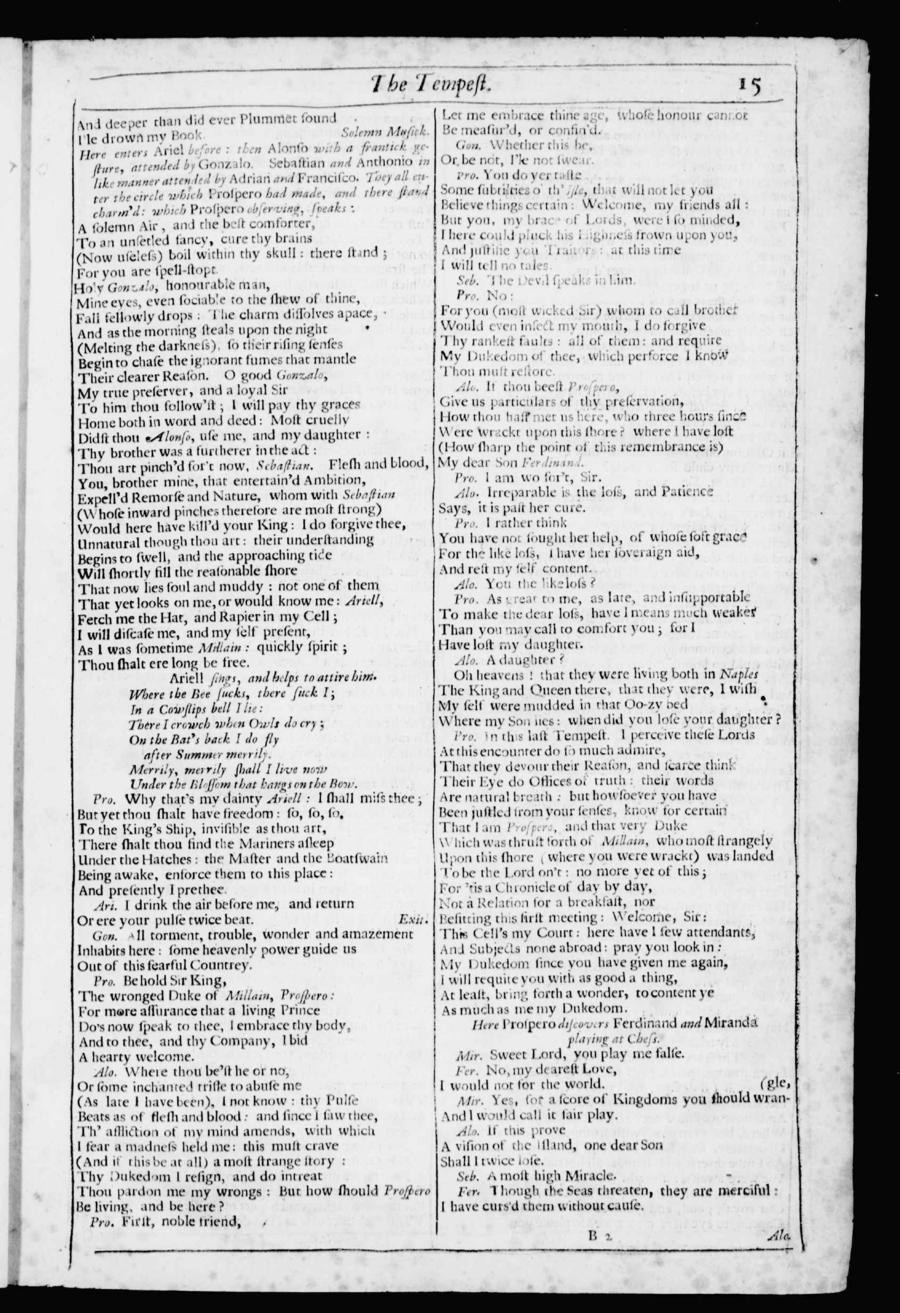 The Tempeſt.
15
And deeper than did ever Plummet ſound
I'le drown my Book. Solemn Muſick.
Here enters Ariel before : then Alonſo with a frantick ge-
ſture, attended by Gonzalo. Sebaſtian and Anthonio in
like manner attended by Adrian and Franciſco. They all en-
ter the circle which Proſpero had made, and there ſtand
charm'd: which Proſpero obſerving, ſpeaks :
A ſolemn Air, and the beſt comforter,
To an unſetled fancy, cure thy brains
(Now uſeleſs) boil within thy skull : there ſtand ;
For you are ſpell-ſtopt.
Holy Gonzalo, honourable man,
Mine eyes, even ſociable to the ſhew of thine,
Fall fellowly drops : The charm diſſolves apace,
And as the morning ſteals upon the night
(Melting the darkneſs), ſo their riſing ſenſes
Begin to chaſe the ignorant fumes that mantle
Their clearer Reaſon. O good Gonzalo,
My true preſerver, and a loyal Sir
To him thou follow'ſt ; I will pay thy graces
Home both in word and deed : Moſt cruelly
Didſt thou Alonſo, uſe me, and my daughter :
Thy brother was a furtherer in the act :
Thou art pinch'd for't now, Sebaſtian. Fleſh and blood,
You, brother mine, that entertain'd Ambition,
Expell'd Remorſe and Nature, whom with Sebaſtian
(Whoſe inward pinches therefore are moſt ſtrong)
Would here have kill'd your King : I do forgive thee,
Unnatural though thou art : their underſtanding
Begins to ſwell, and the approaching tide
Will ſhortly fill the reaſonable ſhore
That now lies foul and muddy : not one of them
That yet looks on me, or would know me : Ariell,
Fetch me the Hat, and Rapier in my Cell ;
I will diſcaſe me, and my ſelf preſent,
As I was ſometime Millain : quickly ſpirit ;
Thou ſhalt ere long be free.
Ariell ſings, and helps to attire him.
Where the Bee ſucks, there ſuck I ;
In a Cowſlips bell I lie :
There I crowch when Owls do cry ;
On the Bat's back I do fly
after Summer merrily.
Merrily, merrily ſhall I live now
Under the Bloſſom that hangs on the Bow.
Pro. Why that's my dainty Ariell : I ſhall miſs thee ;
But yet thou ſhalt have freedom : ſo, ſo, ſo.
To the King's Ship, inviſible as thou art,
There ſhalt thou find the Mariners aſleep
Under the Hatches : the Maſter and the Boatſwain
Being awake, enforce them to this place :
And preſently I prethee.
Ari. I drink the air before me, and return
Or ere your pulſe twice beat. Exit.
Gon. All torment, trouble, wonder and amazement
Inhabits here : ſome heavenly power guide us
Out of this fearful Countrey.
Pro. Behold Sir King,
The wronged Duke of Millain, Proſpero :
For more aſſurance that a living Prince
Do's now ſpeak to thee, I embrace thy body,
And to thee, and thy Company, I bid
A hearty welcome.
Alo. Where thou be'ſt he or no,
Or ſome inchanted trifle to abuſe me
(As late I have been), I not know : thy Pulſe
Beats as of fleſh and blood : and ſince I ſaw thee,
Th' affliction of my mind amends, with which
I fear a madneſs held me : this muſt crave
(And if this be at all) a moſt ſtrange ſtory :
Thy Dukedom I reſign, and do intreat
Thou pardon me my wrongs : But how ſhould Proſpero
Be living, and be here ?
Pro. Firſt, noble friend,
Let me embrace thine age, whoſe honour cannot
Be meaſur'd, or confin'd.
Gon. Whether this be,
Or be not, I'le not ſwear.
Pro. You do yet taſte
Some ſubtilties o' th' iſle, that will not let you
Believe things certain : Welcome, my friends all :
But you, my brace of Lords, were I ſo minded,
I here could pluck his Highneſs frown upon you,
And juſtifie you Traitors : at this time
I will tell no tales.
Seb. The Devil ſpeaks in him.
Pro. No :
For you (moſt wicked Sir) whom to call brother
Would even infect my mouth, I do forgive
Thy rankeſt faults : all of them : and require
My Dukedom of thee, which perforce I know
Thou muſt reſtore.
Alo. If thou beeſt Proſpero,
Give us particulars of thy preſervation,
How thou haſt met us here, who three hours ſince
Were wrackt upon this ſhore ? where I have loſt
(How ſharp the point of this remembrance is)
My dear Son Ferdinand.
Pro. I am wo for't, Sir.
Alo. Irreparable is the loſs, and Patience
Says, it is paſt her cure.
Pro. I rather think
You have not ſought her help, of whoſe ſoft grace
For the like loſs, I have her ſoveraign aid,
And reſt my ſelf content.
Alo. You the like loſs ?
Pro. As great to me, as late, and inſupportable
To make the dear loſs, have I means much weaker
Than you may call to comfort you ; for I
Have loſt my daughter.
Alo. A daughter ?
Oh heavens ! that they were living both in Naples
The King and Queen there, that they were, I wiſh
My ſelf were mudded in that Oo-zy bed
Where my Son lies : when did you loſe your daughter ?
Pro. In this laſt Tempeſt. I perceive theſe Lords
At this encounter do ſo much admire,
That they devour their Reaſon, and ſcarce think
Their Eye do Offices of truth : their words
Are natural breath : but howſoever you have
Been juſtled from your ſenſes, know for certain
That I am Proſpero, and that very Duke
Which was thruſt forth of Millain, who moſt ſtrangely
Upon this ſhore (where you were wrackt) was landed
To be the Lord on't : no more yet of this ;
For 'tis a Chronicle of day by day,
Not a Relation for a breakfaſt, nor
Befitting this firſt meeting : Welcome, Sir :
This Cell's my Court : here have I few attendants,
And Subjects none abroad : pray you look in :
My Dukedom ſince you have given me again,
I will requite you with as good a thing,
At leaſt, bring forth a wonder, to content ye
As much as me my Dukedom.
Here Proſpero diſcovers Ferdinand and Miranda
playing at Cheſs.
Mir. Sweet Lord, you play me falſe.
Fer. No, my deareſt Love,
I would not for the world. (gle,
Mir. Yes, for a ſcore of Kingdoms you ſhould wran-
And I would call it fair play.
Alo. If this prove
A viſion of the Iſland, one dear Son
Shall I twice loſe.
Seb. A moſt high Miracle.
Fer. Though the Seas threaten, they are merciful :
I have curs'd them without cauſe.
B 2
Alo.